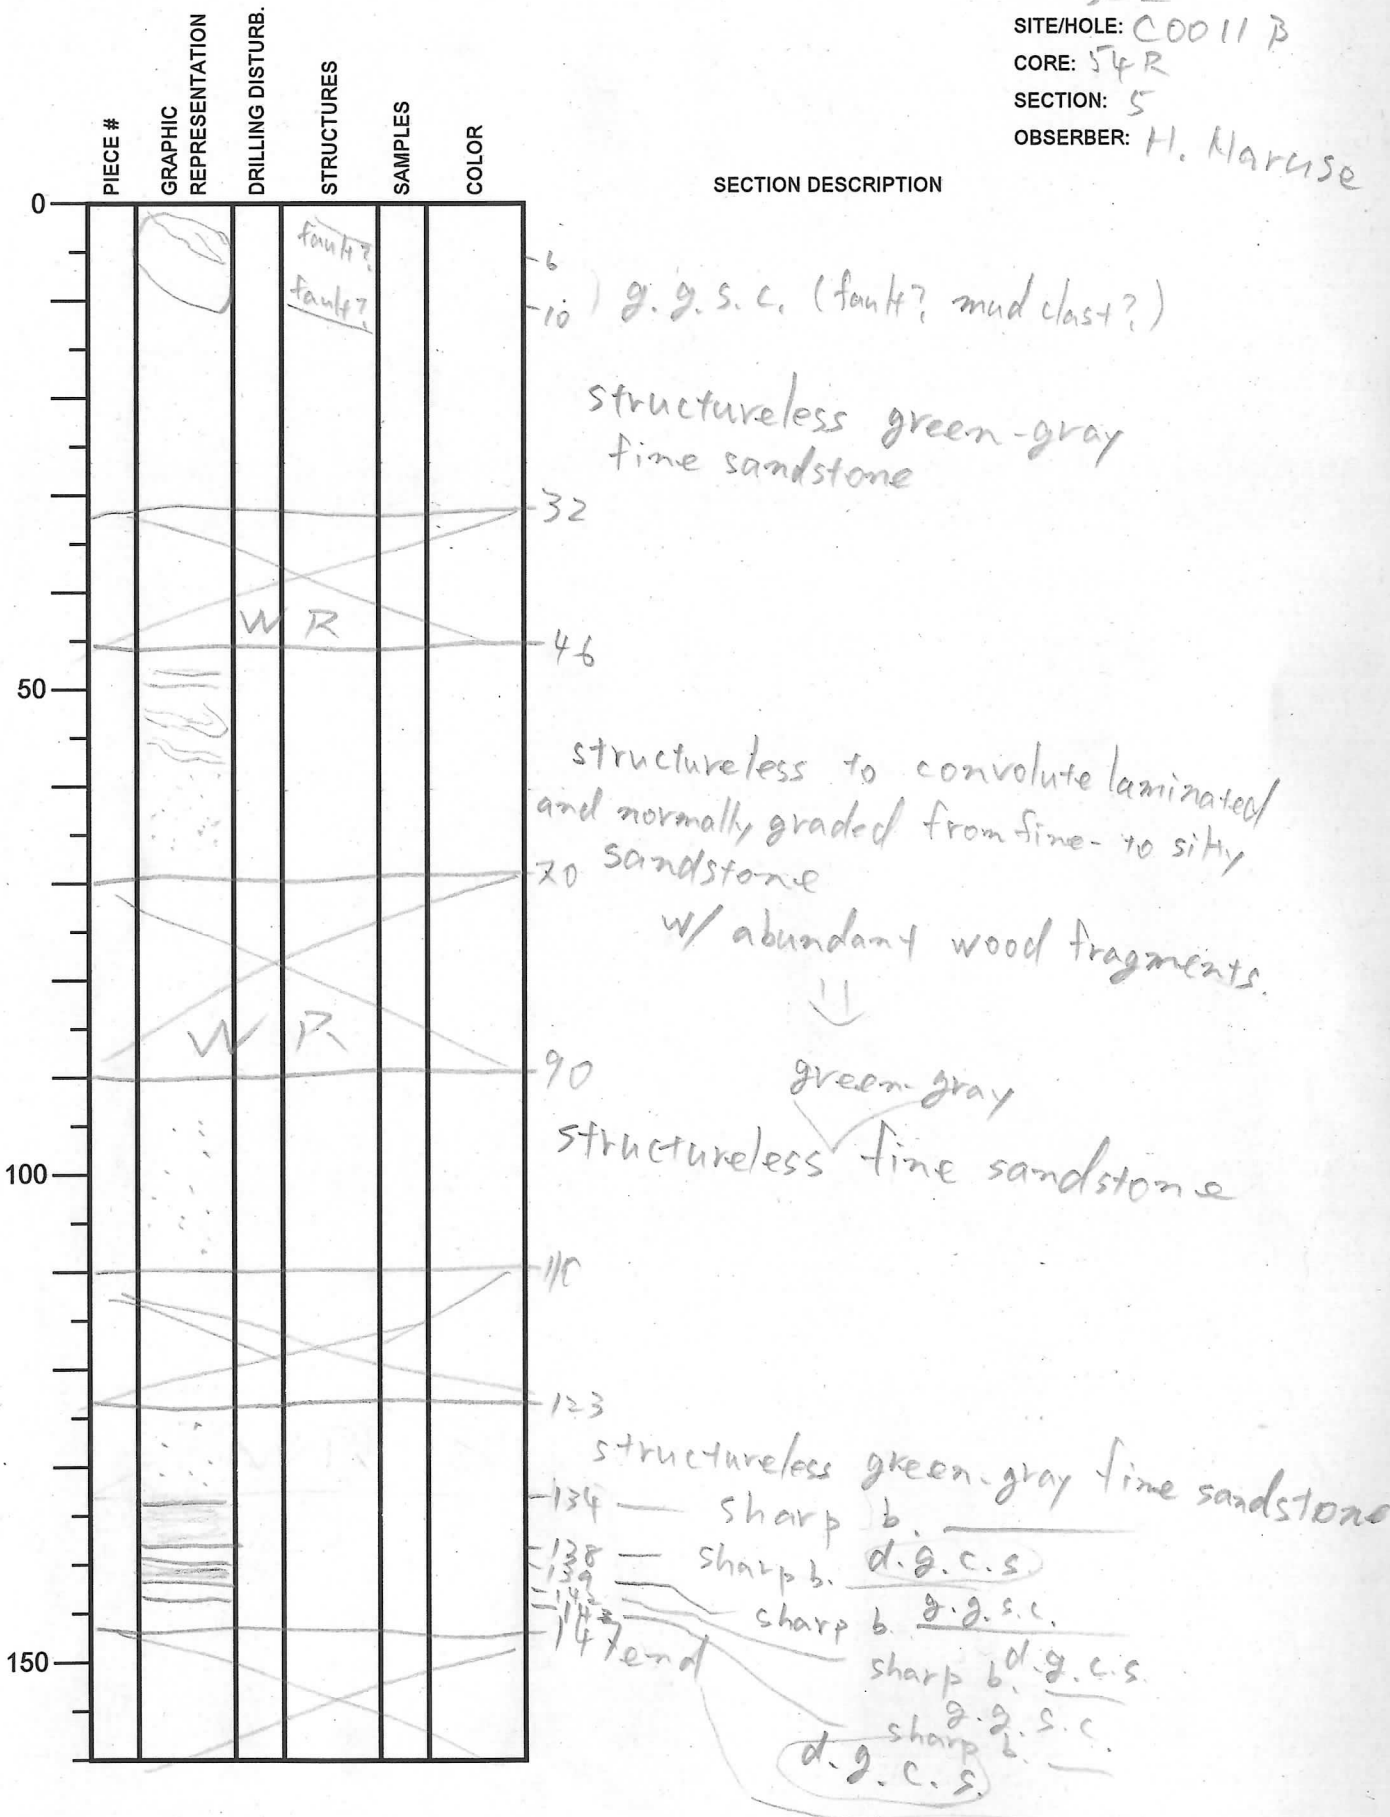 SITE/HOLE: C0011 B
CORE: 54R
SECTION: 5
OBSERBER: H. Maruse
PIECE #
GRAPHIC
REPRESENTATION
DRILLING DISTURB.
STRUCTURES
SAMPLES
COLOR
SECTION DESCRIPTION
0
fault?
6
fault?
10
g. g. s. c. (fault? mud clast?)
structureless green-gray
fine sandstone
32
W R
46
50
structureless to convolute laminated
and normally graded from fine- to silty
70 sandstone
w/ abundant wood fragments.
W R
90
green-gray
structureless fine sandstone
100
110
123
structureless green-gray fine sandstone
134 — sharp b.
138 — sharp b. d.g.c.s
139 sharp b. g.g.s.c.
142 sharp b. d.g.c.s.
143 g.g.s.c.
147 end sharp b.
150
d.g.c.s.